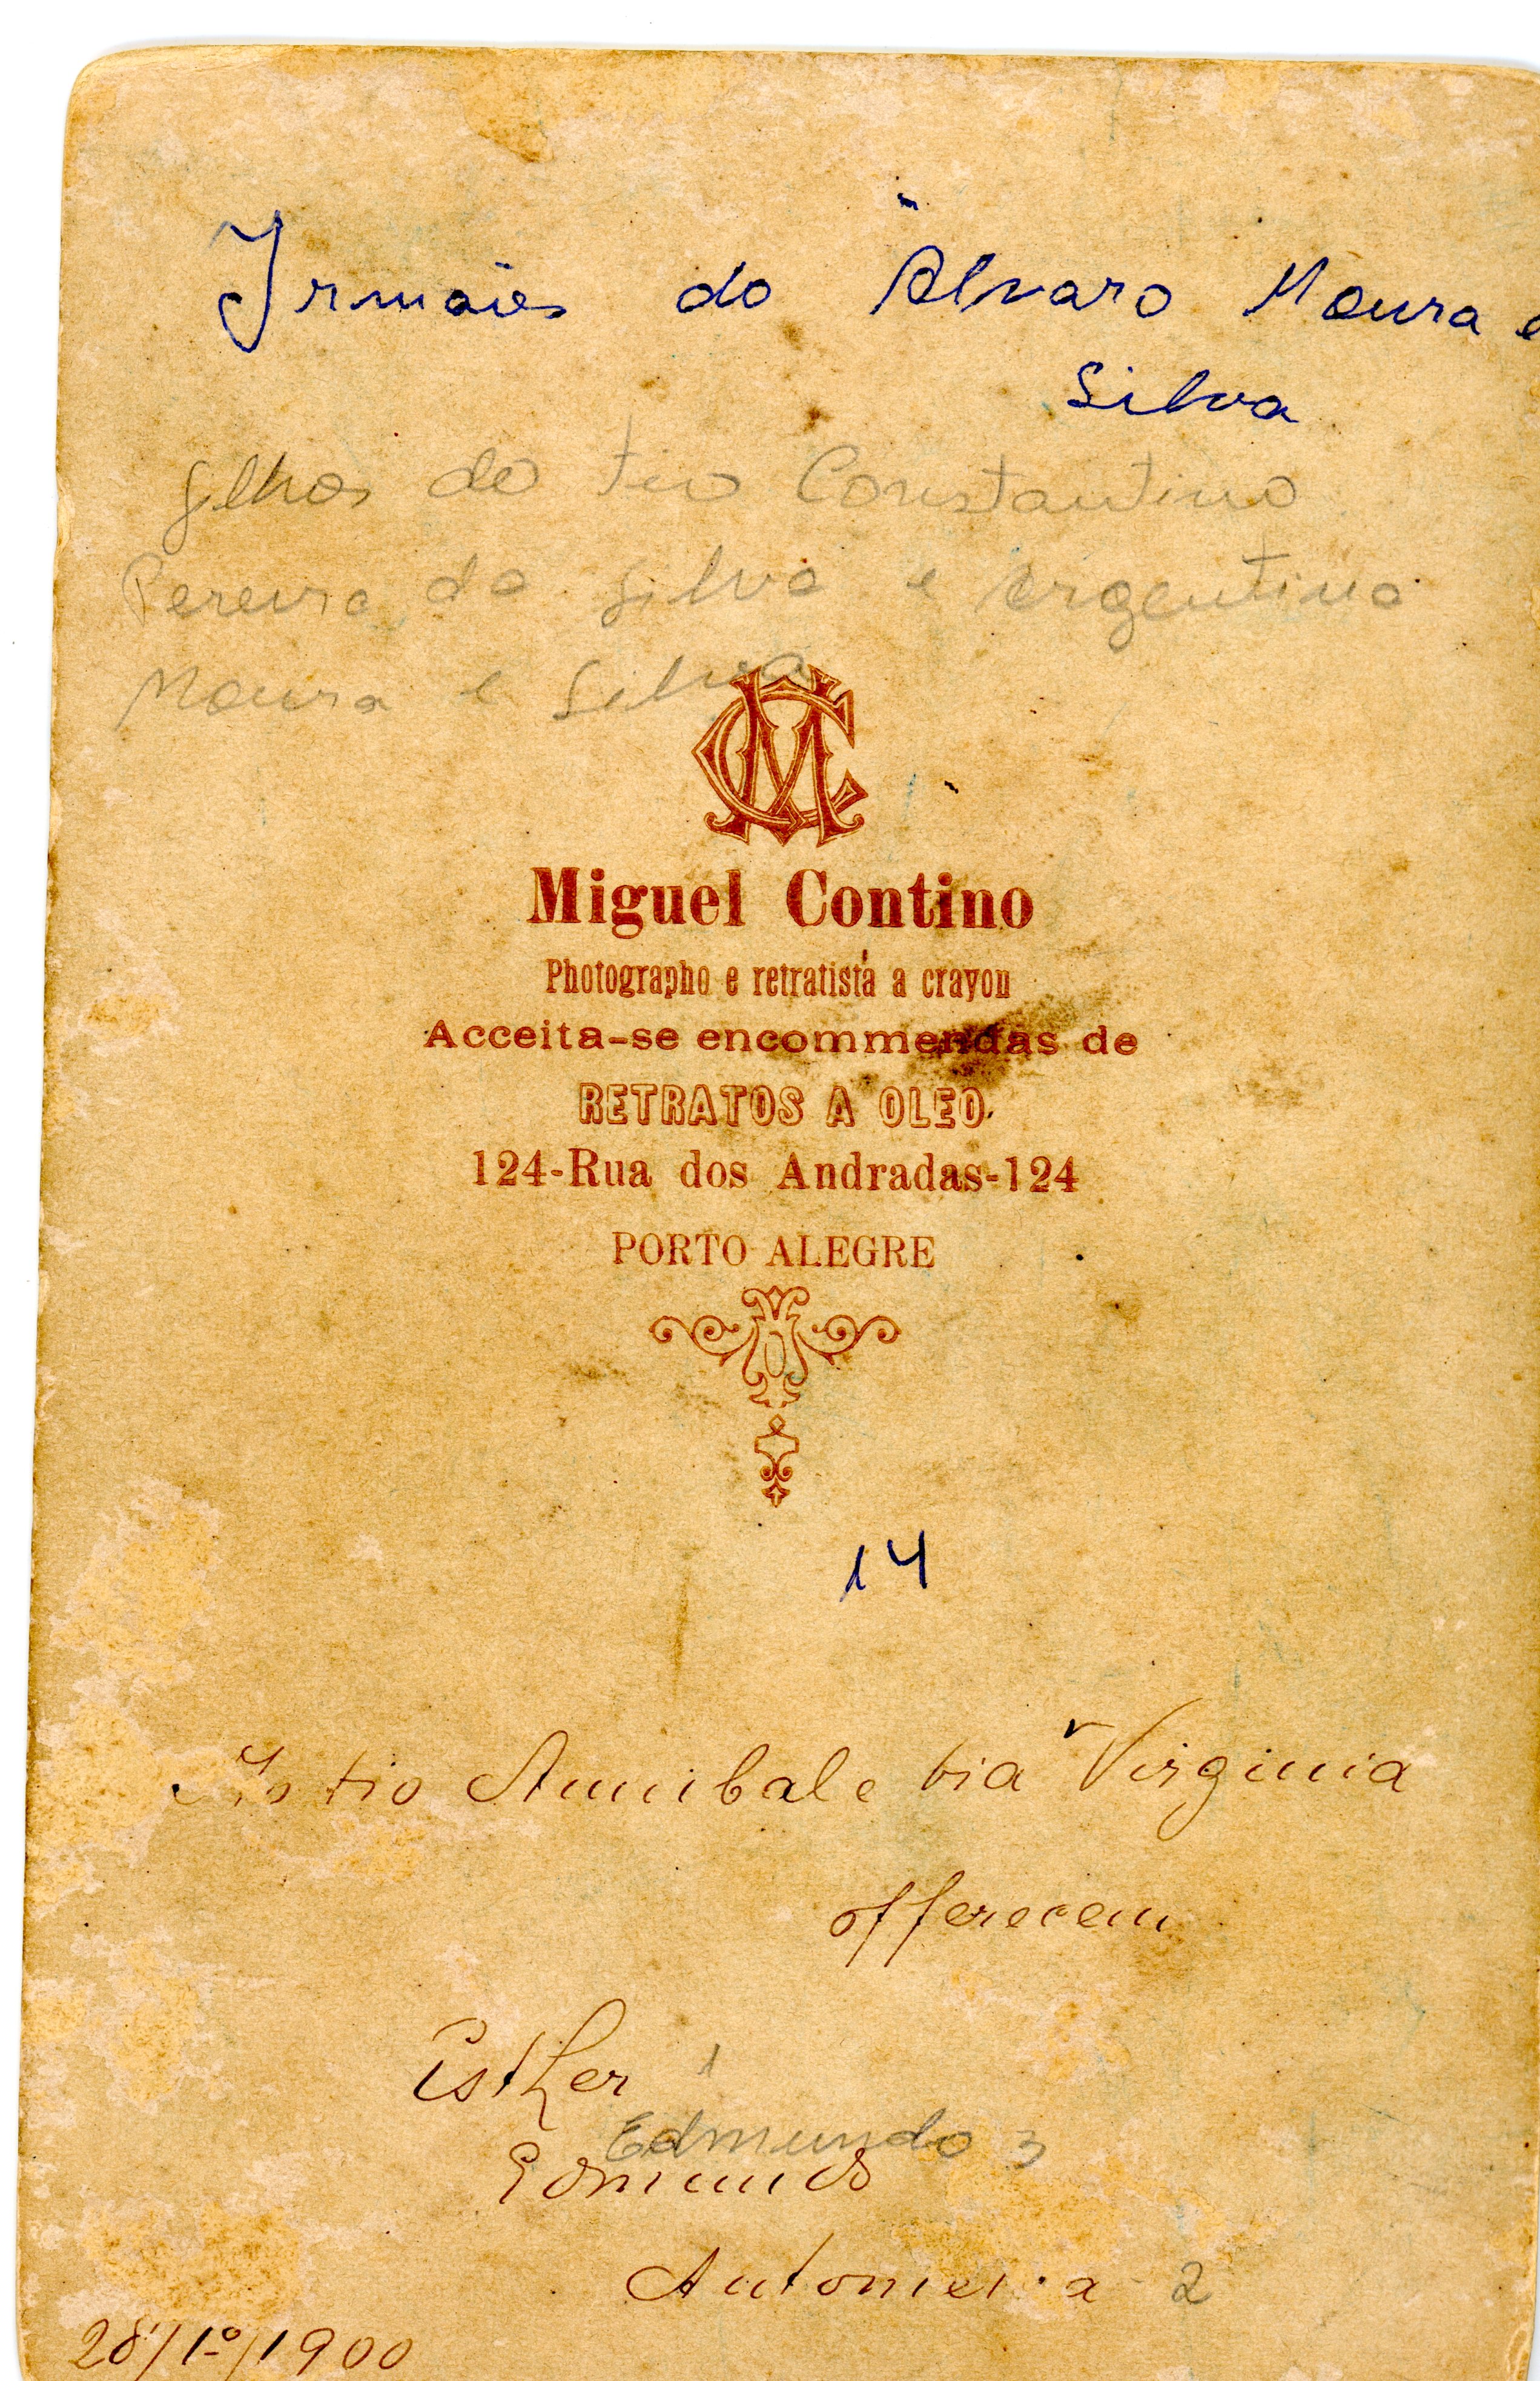 Irmães do Alvaro Moura e
Silva
filhos do tio Constantino
Pereira da Silva e Argentina
Moura e Silva
MC
Miguel Contino
Photographo e retratista a crayon
Acceita-se encommendas de
RETRATOS A OLEO
124-Rua dos Andradas-124
PORTO ALEGRE
14
Ao tio Annibal e tia Virginia
offerecem
Esther 1
Edmundo 3
Edmundo
Antonieta 2
28/1º/1900